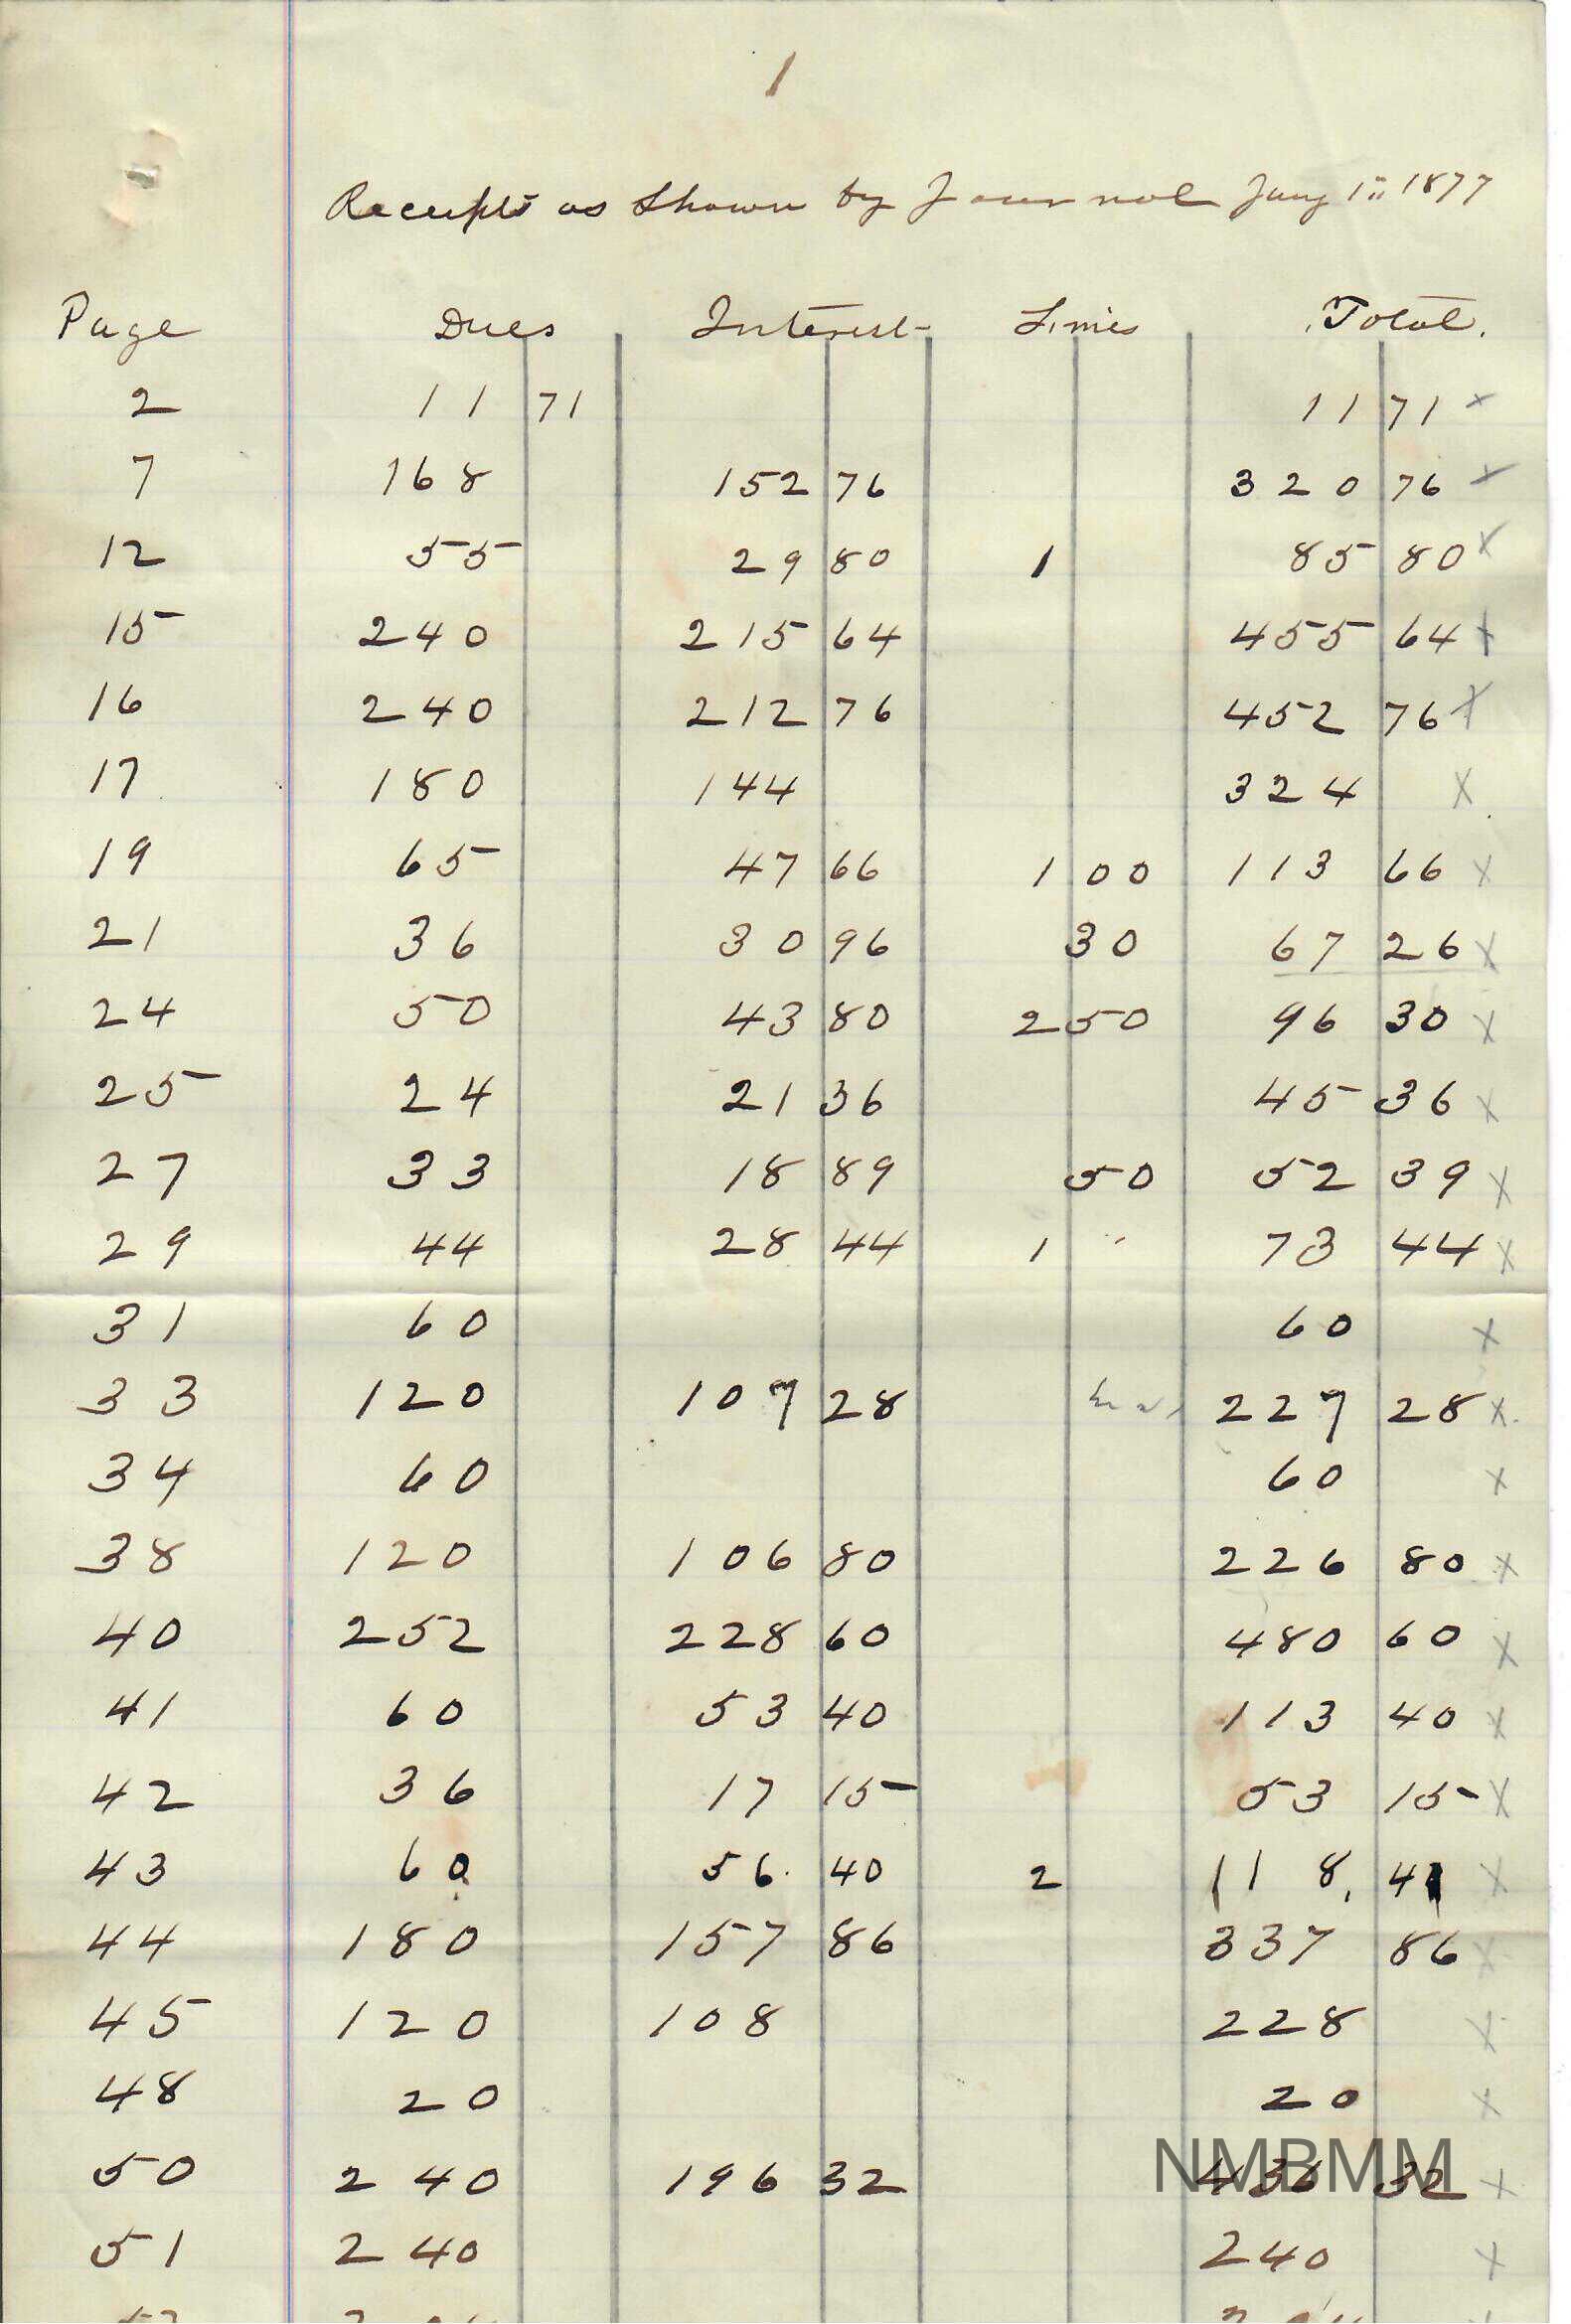 1
Receipts as Shown by Journal Jany 1" 1877
Page Dues Interest Fines Total.
2 11 71 11 71 x
7 168 152 76 320 76 x
12 55 29 80 1 85 80 x
15 240 215 64 455 64 x
16 240 212 76 452 76 x
17 180 144 324 x
19 65 47 66 1 00 113 66 x
21 36 30 96 30 67 26 x
24 50 43 80 2 50 96 30 x
25 24 21 36 45 36 x
27 33 18 89 50 52 39 x
29 44 28 44 1 73 44 x
31 60 60 x
33 120 107 28 227 28 x
34 60 60 x
38 120 106 80 226 80 x
40 252 228 60 480 60 x
41 60 53 40 113 40 x
42 36 17 15 53 15 x
43 60 56 40 2 118 4 x
44 180 157 86 337 86 x
45 120 108 228 x
48 20 20 x
50 240 196 32 436 32 x
NMBMM
51 240 240 x